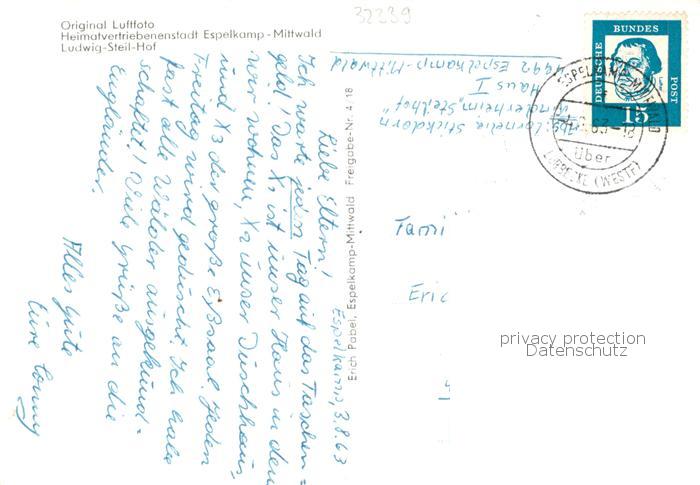 32339
Original Luftfoto
Heimatvertriebenenstadt Espelkamp - Mittwald
Ludwig-Steil-Hof
DEUTSCHE BUNDES POST
15
über
LÜBBECKE (WESTF)
Abs. Cornelia Stickdorn
"Steilhof"
Haus I
4992 Espelkamp-Mittwald
Espelkamp, 3.8.63
Liebe Eltern!
Ich warte jeden Tag auf das Taschen=
geld! Das X1 ist unser Haus in dem
wir wohnen, X2 unser Duschhaus,
und X3 der große Eßsaal. Jeden
Freitag wird geduscht. Ich habe
fast alle Wälder ausgekund-
schaftet! Viele Grüße an die
Engländer.
Alles Gute
Eure Conny
Erich Pabel, Espelkamp-Mittwald Freigabe-Nr. 4 18
Fami
Eric
privacy protection
Datenschutz